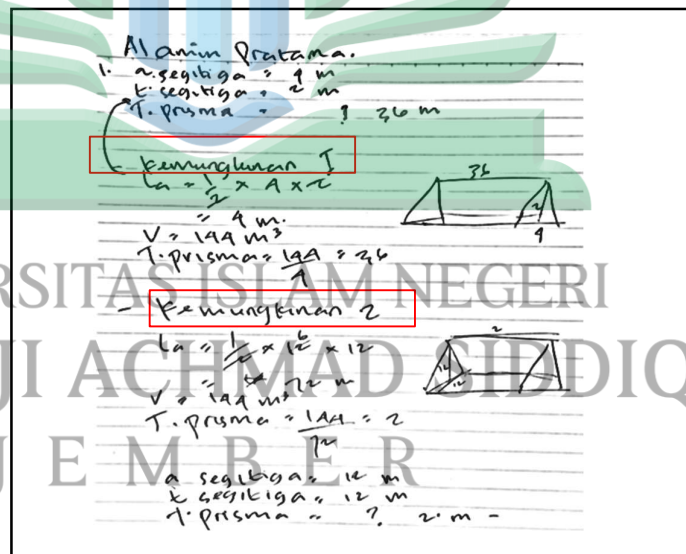 Al amin Pratama.
1. a. segitiga = 4 m
t. segitiga = 2 m
T. prisma = ? 36 m
- Kemungkinan I
La = 1/2 × 4 × 2
= 4 m.
36
2
4
V = 144 m³
T. prisma = 144/4 = 36
ERSITAS ISLAM NEGERI
- Kemungkinan 2
2
La = 1/2 × 12 6 × 12
12
12
= 72 m
JI ACHMAD SIDDIQ
V = 144 m³
T. prisma = 144/72 = 2
JEMBER
a segitiga = 12 m
t segitiga = 12 m
T. prisma = ? 2 m -